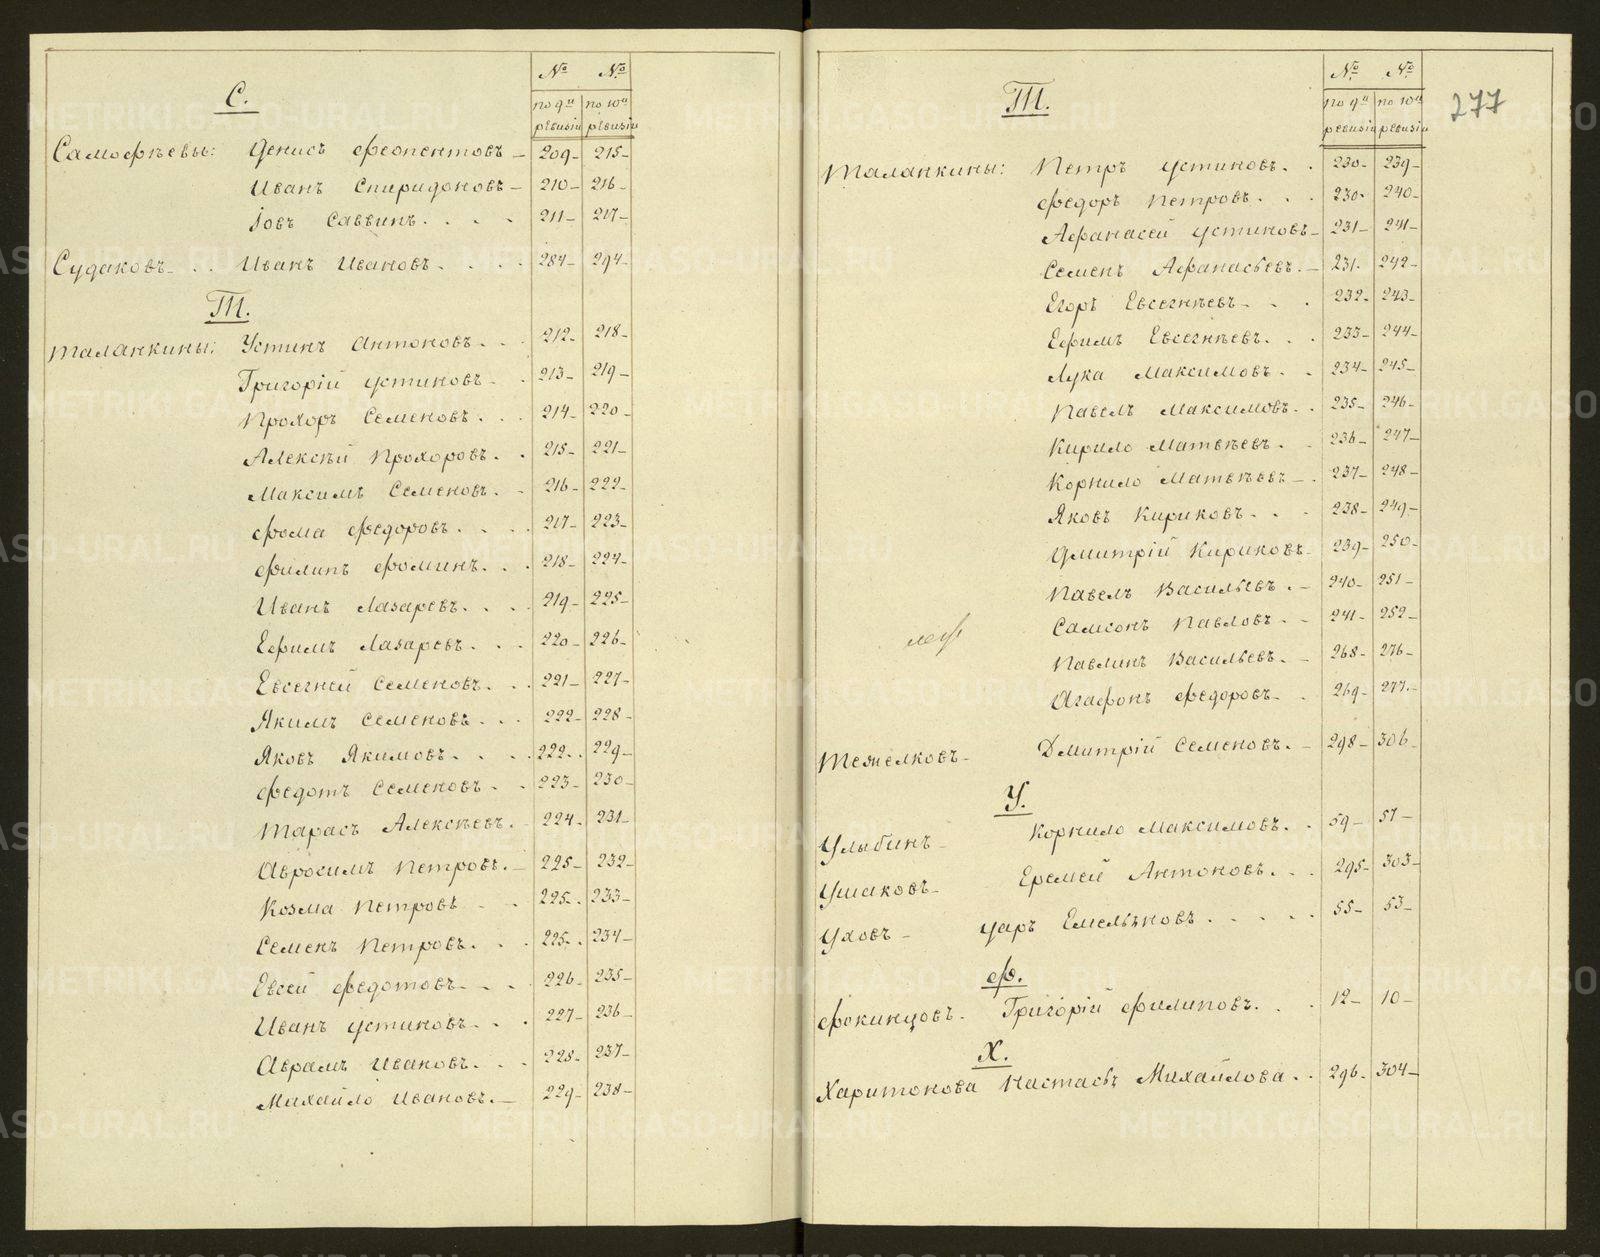 С.
№ №
по 9й по 10й
ревизіи ревизіи
Самофѣевы: Денисъ Феопентовъ 209 215
Иванъ Спиридоновъ 210 216
Іовъ Саввинъ 211 217
Судаковъ Иванъ Ивановъ 284 294
Т.
Таланкины: Устинъ Антоновъ 212 218
Григорій Устиновъ 213 219
Прохоръ Семеновъ 214 220
Алексѣй Прохоровъ 215 221
Максимъ Семеновъ 216 222
Фома Федоровъ 217 223
Филипъ Фоминъ 218 224
Иванъ Лазаревъ 219 225
Ефимъ Лазаревъ 220 226
Евсегней Семеновъ 221 227
Якимъ Семеновъ 222 228
Яковъ Якимовъ 222 229
Федотъ Семеновъ 223 230
Тарасъ Алексѣевъ 224 231
Авросимъ Петровъ 225 232
Козма Петровъ 225 233
Семенъ Петровъ 225 234
Евсей Федотовъ 226 235
Иванъ Устиновъ 227 236
Аврамъ Ивановъ 228 237
Михайло Ивановъ 229 238
277
Т.
№ №
по 9й по 10й
ревизіи ревизіи
Таланкины: Петръ Устиновъ 230 239
Федоръ Петровъ 230 240
Афанасей Устиновъ 231 241
Семенъ Афанасьевъ 231 242
Егоръ Евсегнѣевъ 232 243
Ефимъ Евсегнѣевъ 233 244
Лука Максимовъ 234 245
Павелъ Максимовъ 235 246
Кирило Матвѣевъ 236 247
Корнило Матвѣевъ 237 248
Яковъ Кириковъ 238 249
Дмитрій Кириковъ 239 250
Павелъ Васильевъ 240 251
Самсонъ Павловъ 241 252
Павлинъ Васильевъ 268 276
Агафонъ Федоровъ 269 277
Тежелковъ Дмитрій Семеновъ 298 306
У.
Улыбинъ Корнило Максимовъ 59 57
Ушаковъ Еремей Антоновъ 295 303
Уховъ Уаръ Емельяновъ 55 53
Ф.
Фокинцовъ Григорій Филиповъ 12 10
Х.
Харитонова Настасья Михайлова 296 304
METRIKI.GASO-URAL.RU